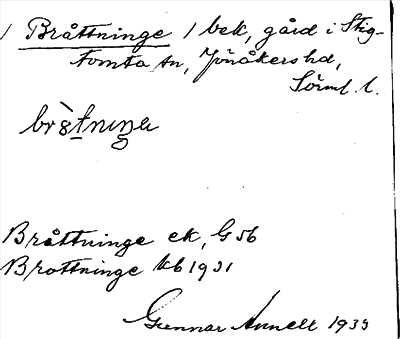 / Bråttninge / bek, gård i Stig-
tomta sn, Jönåkers hd,
Sörml. l.
Bråttninge ek, G 56
Brottninge kb 1931
Gunnar Annell 1933